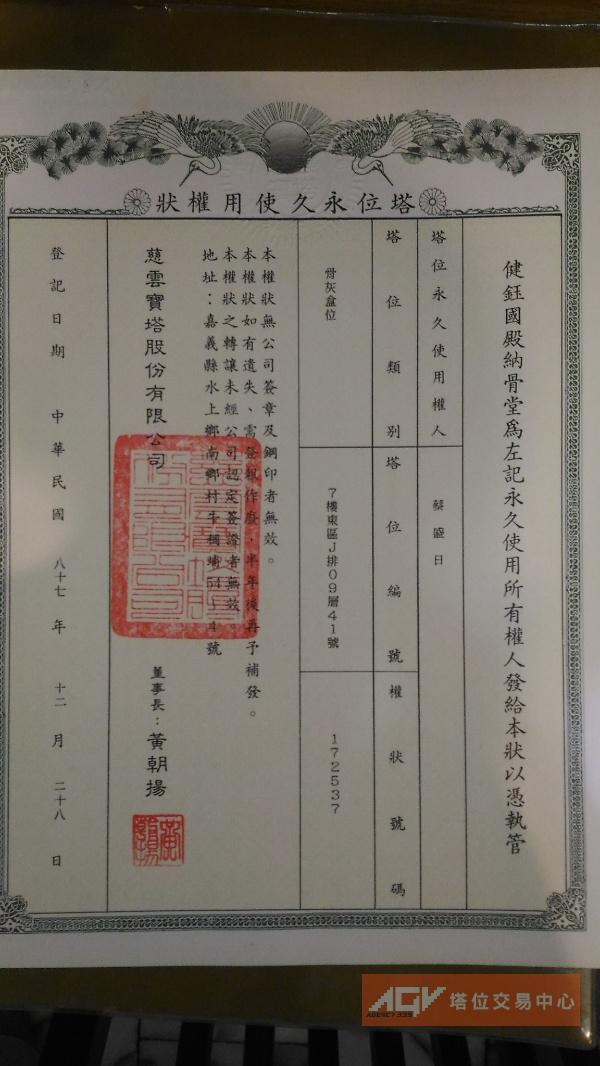 塔位永久使用權狀
健鈺國殿納骨堂為左記永久使用所有權人發給本狀以憑執管
塔位永久使用權人
蔡盛日
塔位類別
塔位編號
權狀號碼
骨灰盒位
7樓東區J排09層41號
172537
本權狀無公司簽章及鋼印者無效。
本權狀如有遺失、需登報作廢,半年後再予補發。
本權狀之轉讓未經公司認定簽證者無效。
地址：嘉義縣水上鄉南鄉村牛稠埔
號
慈雲寶塔股份有限公司
董事長：黃朝揚
登記日期 中華民國 八十七 年 十二 月 二十八 日
AGV 塔位交易中心
AGENCY 339